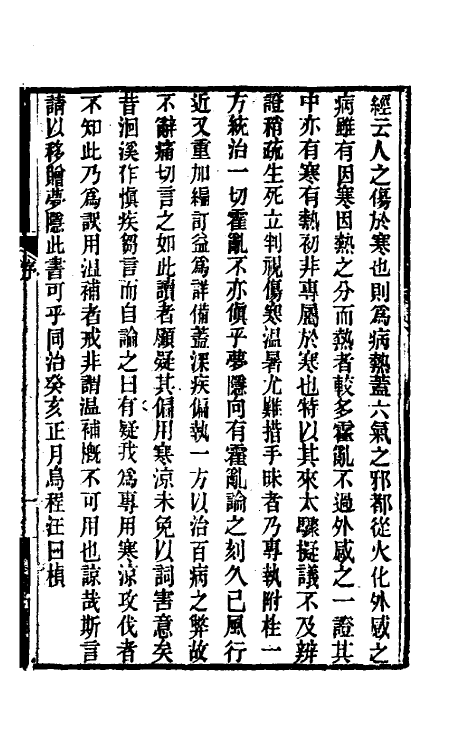 經云人之傷於寒也則爲病熱蓋六氣之邪都從火化外感之
病雖有因寒因熱之分而熱者較多霍亂不過外感之一證其
中亦有寒有熱初非專屬於寒也特以其來太驟擬議不及辨
證稍疏生死立判視傷寒溫暑尤難措手昧者乃專執附桂一
方統治一切霍亂不亦愼乎夢隱向有霍亂論之刻久已風行
近又重加編訂益爲詳備蓋深疾偏執一方以治百病之弊故
不辭痛切言之如此讀者願疑其偏用寒涼未免以詞害意矣
昔洄溪作慎疾芻言而自論之曰有疑我爲專用寒涼攻伐者
不知此乃爲誤用溫補者戒非謂溫補概不可用也諒哉斯言
請以移贈夢隱此書可乎同治癸亥正月烏程汪曰楨
序